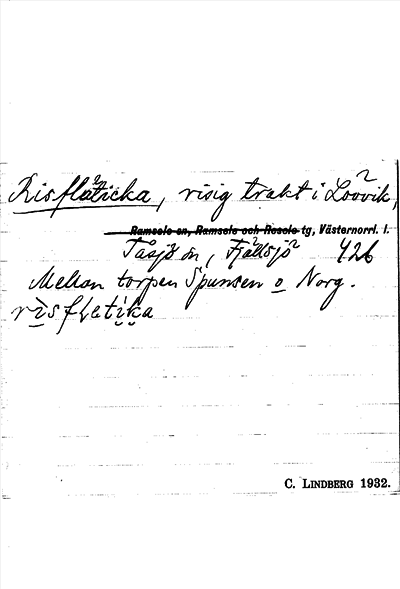 Risflåticka, risig trakt i Lövvik,
Ramsele sn, Ramsele och Resele tg, Västernorrl. l.
Tåsjö sn, Fjällsjö 426
Mellan torpen Spunsen o Norg.
risflatika
C. LINDBERG 1932.